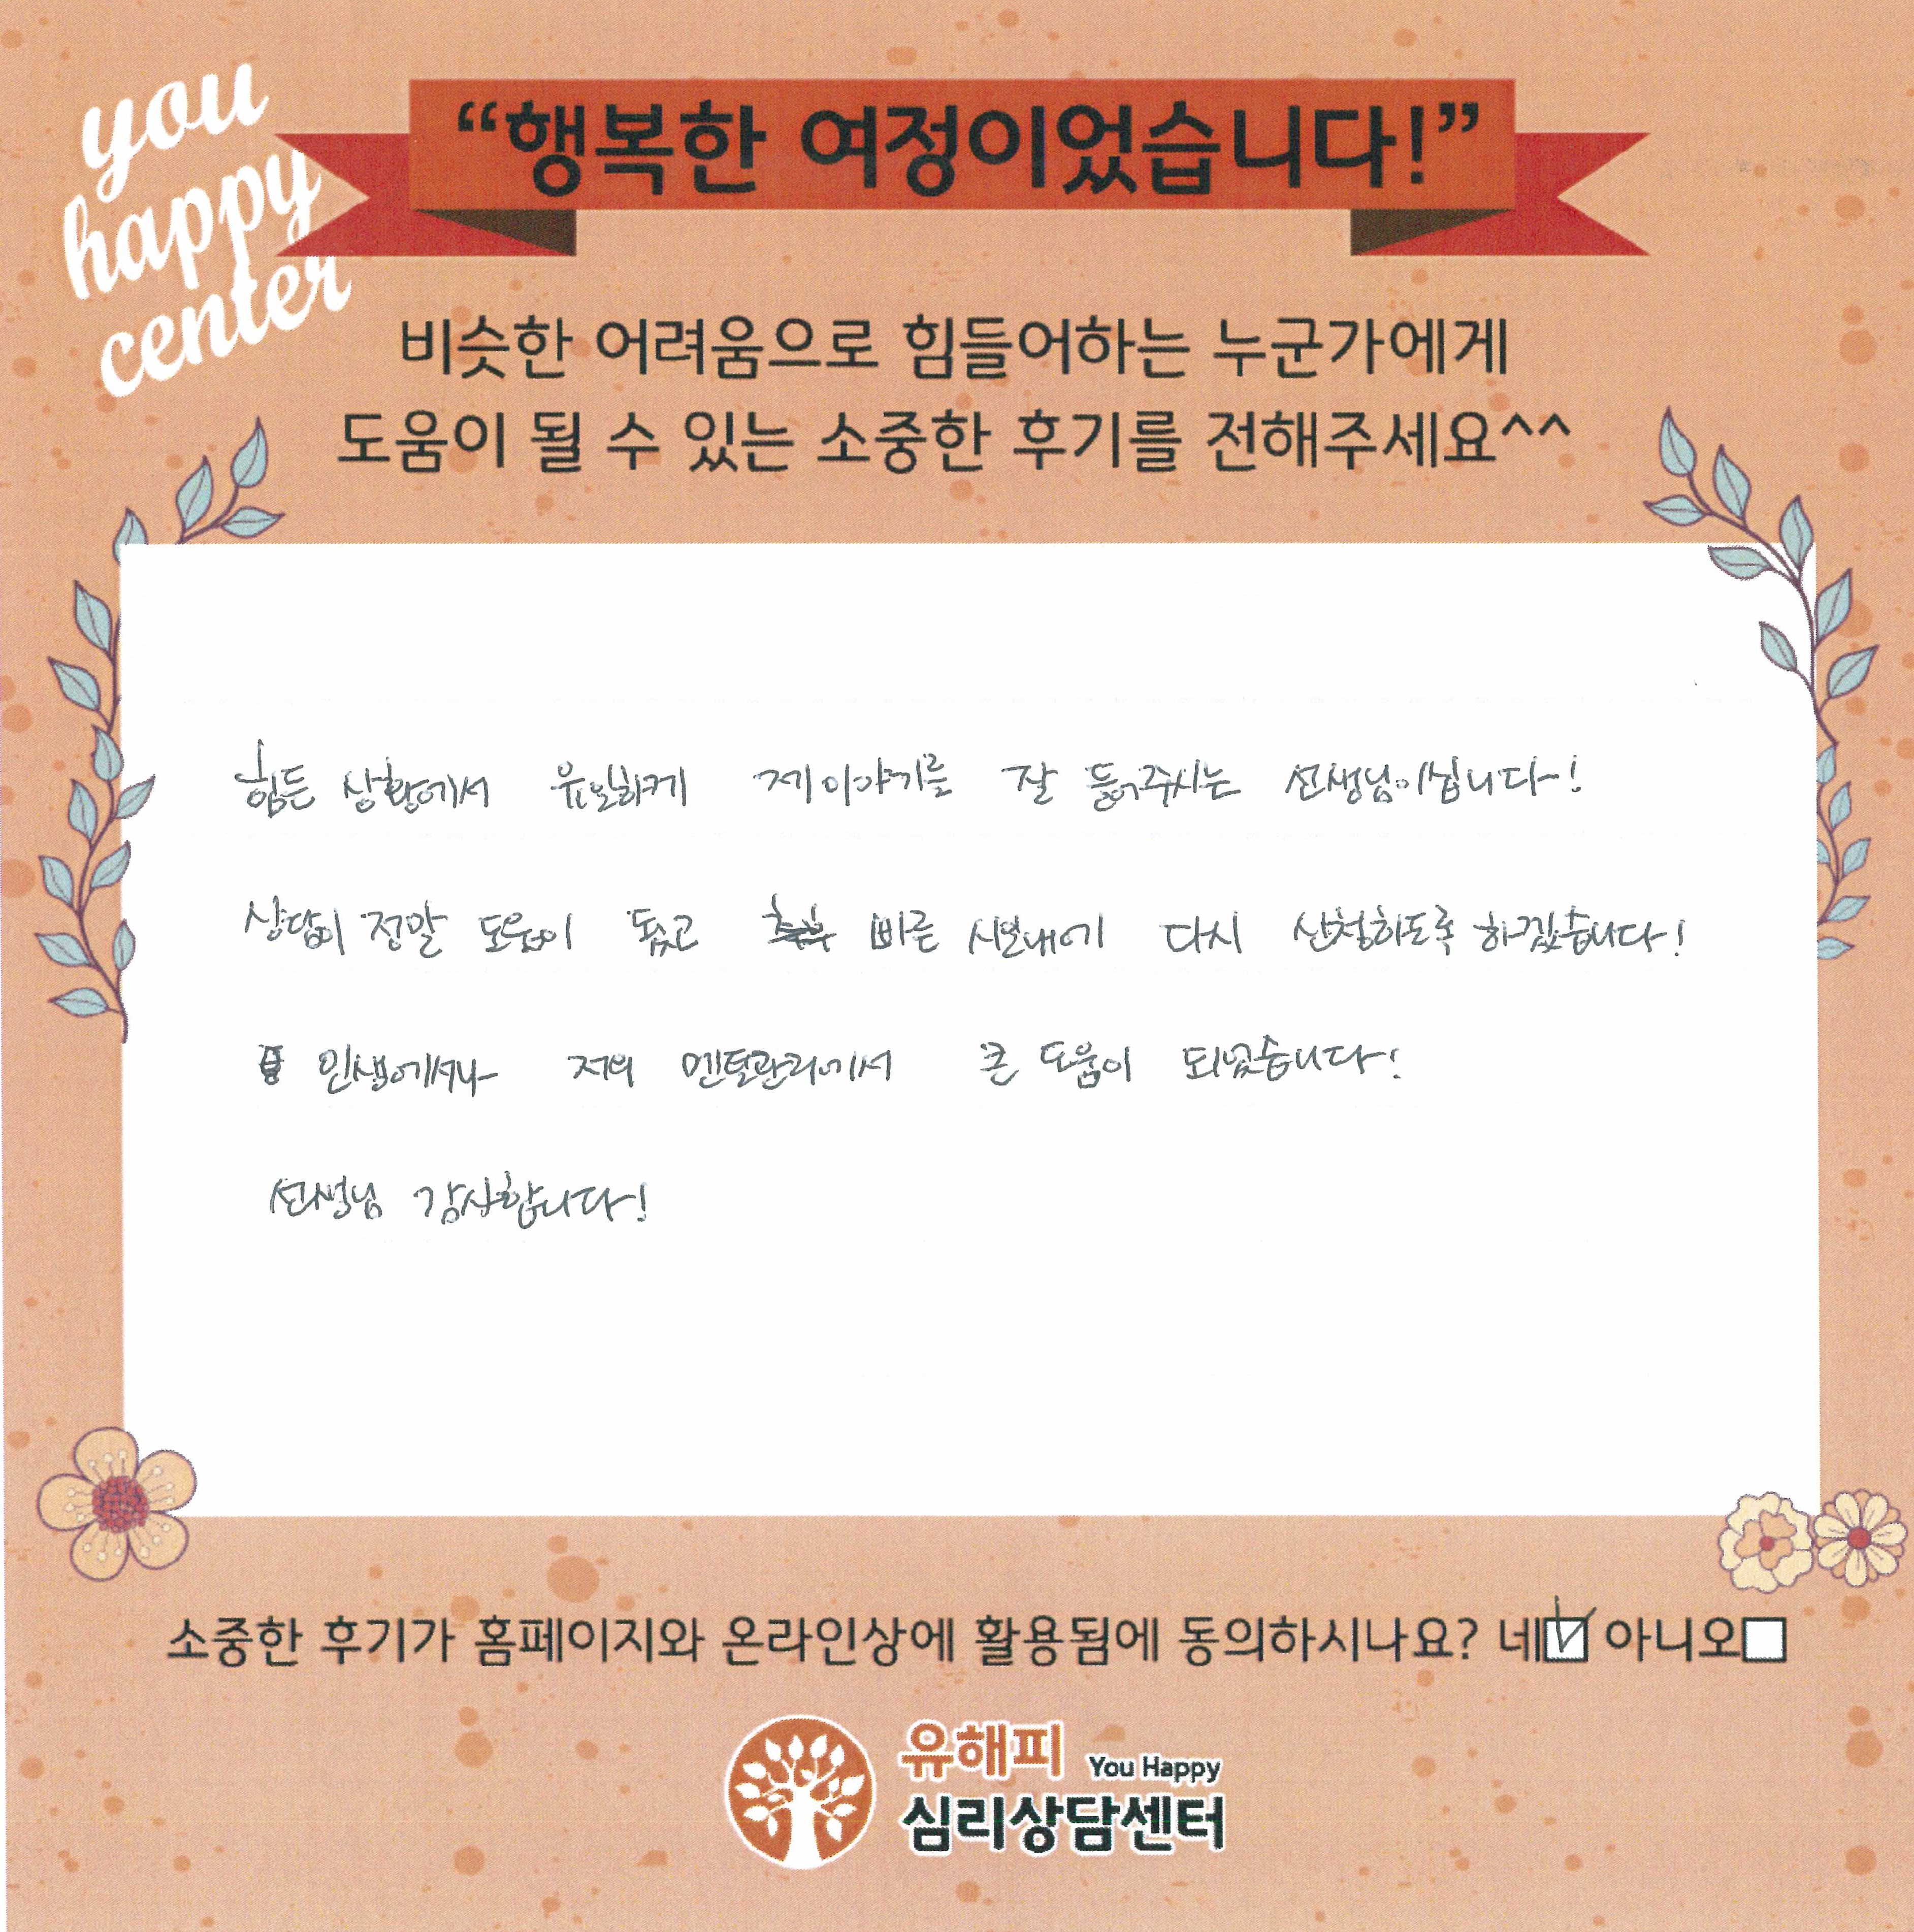 you
happy
center
“행복한 여정이었습니다!”
비슷한 어려움으로 힘들어하는 누군가에게
도움이 될 수 있는 소중한 후기를 전해주세요^^
힘든 상황에서 유일하게 제 이야기를 잘 들어주시는 선생님이십니다~!
상담이 정말 도움이 됐고 빠른 시일내에 다시 신청하도록 하겠습니다!
인생에서나 저의 멘탈관리에서 큰 도움이 되었습니다!
선생님 감사합니다!
소중한 후기가 홈페이지와 온라인상에 활용됨에 동의하시나요? 네☑ 아니오☐
유해피 You Happy
심리상담센터